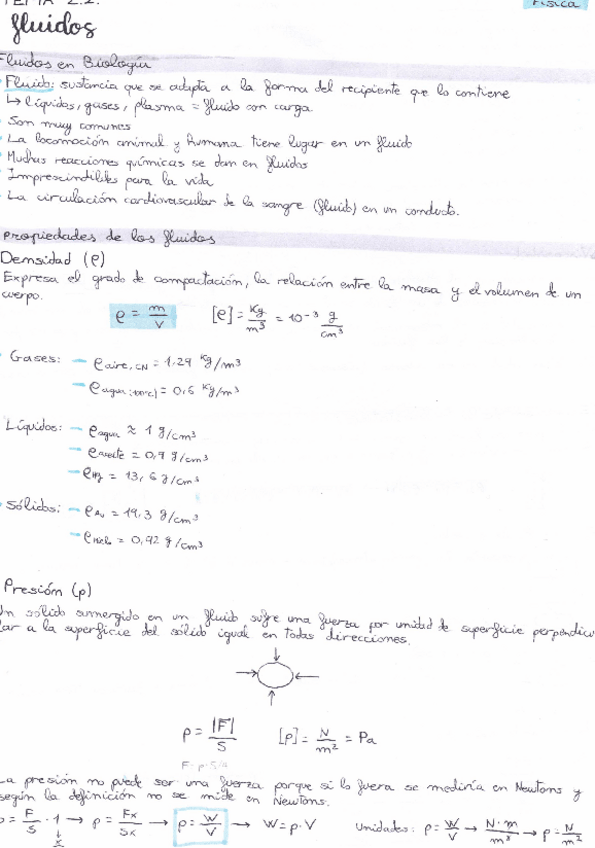 TEMA 2.2.
Física
fluidos
Fluidos en Biología
Fluido: sustancia que se adapta a la forma del recipiente que lo contiene
↳ líquidos, gases, plasma = fluido con carga.
Son muy comunes
La locomoción animal y humana tiene lugar en un fluido
Muchas reacciones químicas se dan en fluidos
Imprescindibles para la vida
La circulación cardiovascular de la sangre (fluido) en un conducto.
Propiedades de los fluidos
Densidad (ρ)
Expresa el grado de compactación, la relación entre la masa y el volumen de un
cuerpo.
ρ = m/V [ρ] = Kg/m³ = 10⁻³ g/cm³
Gases: – ρaire, CN = 1.29 Kg/m³
– ρagua (100ºC) = 0,6 Kg/m³
Líquidos: – ρagua ≈ 1 g/cm³
– ρaceite = 0,9 g/cm³
– ρHg = 13,6 g/cm³
Sólidos: – ρAu = 19.3 g/cm³
– ρhielo = 0,92 g/cm³
Presión (p)
Un sólido sumergido en un fluido sufre una fuerza por unidad de superficie perpendicu
lar a la superficie del sólido igual en todas direcciones.
p = |F|/S [p] = N/m² = Pa
La presión no puede ser una fuerza porque si lo fuera se mediría en Newtons y
según la definición no se mide en Newtons.
p = F/S · 1 → p = Fx/Sx → p = W/V → W = p · V Unidades: p = W/V → N·m/m³ → p = N/m²
x